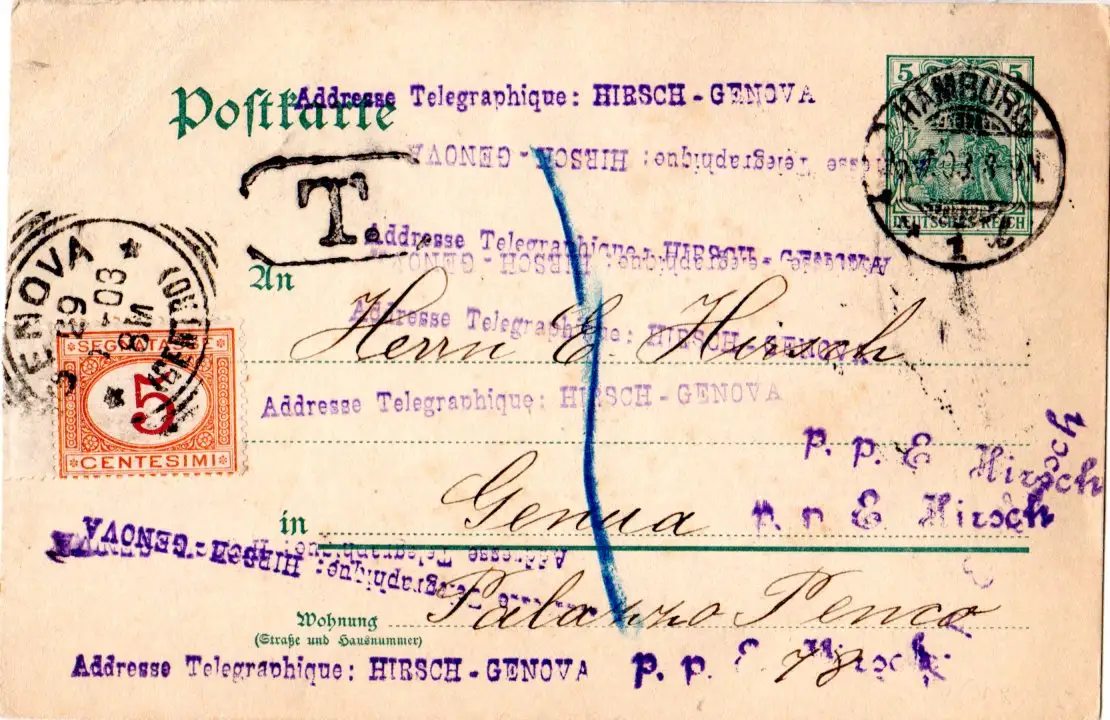 Postkarte
Addresse Telegraphique: HIRSCH - GENOVA
5 5
HAMBURG
03. 8-9N.
DEUTSCHES REICH
1
Telegraphique: HIRSCH - GENOVA
T.
Addresse Telegraphique: HIRSCH - GENOVA
An
Herrn E. Hirsch
Addresse Telegraphique: HIRSCH - GENOVA
GENOVA
29
03
8M
SEGNATASSE
5
CENTESIMI
Addresse Telegraphique: HIRSCH - GENOVA
p. p. E Hirsch
in Genua
E Hirsch
Addresse Telegraphique: HIRSCH - GENOVA
Palazzo Penco
Wohnung
(Straße und Hausnummer)
Addresse Telegraphique: HIRSCH - GENOVA
p. p. E Hirsch
78